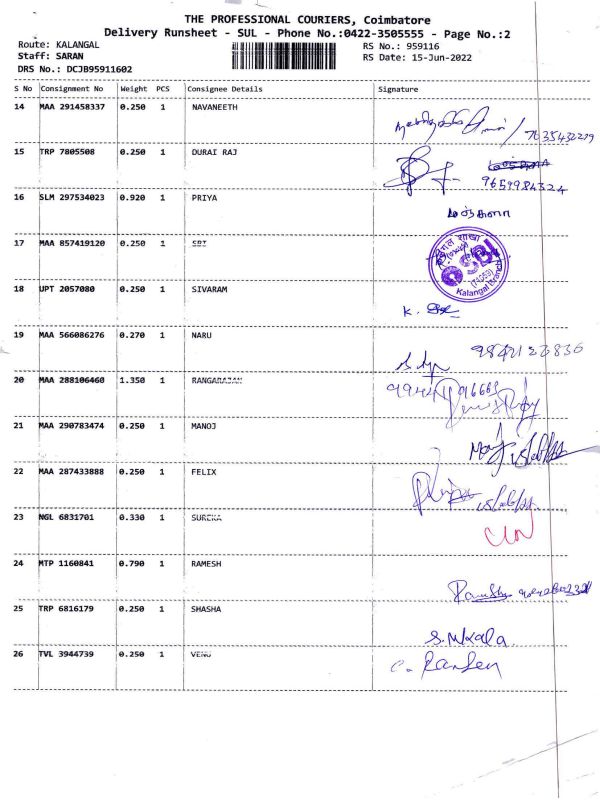 THE PROFESSIONAL COURIERS, Coimbatore
Delivery Runsheet - SUL - Phone No.:0422-3505555 - Page No.:2
Route: KALANGAL RS No.: 959116
Staff: SARAN RS Date: 15-Jun-2022
DRS No.: DCJB95911602
S No Consignment No Weight PCS Consignee Details Signature
14 MAA 291458337 0.250 1 NAVANEETH
15 TRP 7805508 0.250 1 DURAI RAJ
9659984324
16 SLM 297534023 0.920 1 PRIYA
17 MAA 857419120 0.250 1 SBI
Kalangal Branch
18 UPT 2057080 0.250 1 SIVARAM
K.
19 MAA 566086276 0.270 1 NARU
20 MAA 288106460 1.350 1 RANGARAJAN
21 MAA 290783474 0.250 1 MANOJ
22 MAA 287433888 0.250 1 FELIX
23 NGL 6831701 0.330 1 SUREKA
24 MTP 1160841 0.790 1 RAMESH
25 TRP 6816179 0.250 1 SHASHA
S. Mkala
26 TVL 3944739 0.250 1 VENU